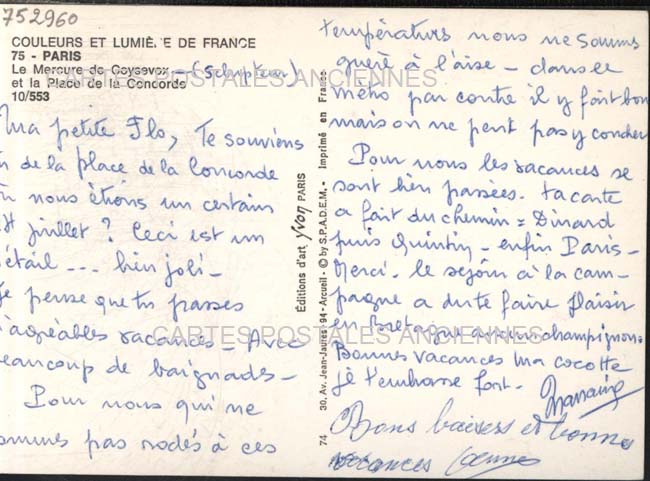 752960
COULEURS ET LUMIÈRE DE FRANCE
75 - PARIS
Le Mercure de Coysevox - (Sculpteur)
et la Place de la Concorde
10/553
CARTES POSTALES ANCIENNES
Ma petite Flo, Te souviens
de la place de la Concorde
nous étions un certain
juillet ? Ceci est un
étail --- bien joli -
je pense que tu passes
d'agréables vacances - Avec
beaucoup de baignades -
Pour nous qui ne
sommes pas rodés à ces
Éditions d'art yvon PARIS
30, Av. Jean-Jaurès - 94 - Arcueil - © by S.P.A.D.E.M. - Imprimé en France
74
températures nous ne sommes
guère à l'aise - dans le
métro par contre il y fait bon
mais on ne peut pas y coucher
Pour nous les vacances se
sont bien passées. ta carte
a fait du chemin = Dinard
puis Quintin - enfin Paris -
Merci - le séjour à la cam-
pagne a dû te faire plaisir
en Bretagne champignons
CARTES POSTALES ANCIENNES
Bonnes vacances ma cocotte
je t'embrasse fort. Marraine
Bons baisers et bonnes
vacances